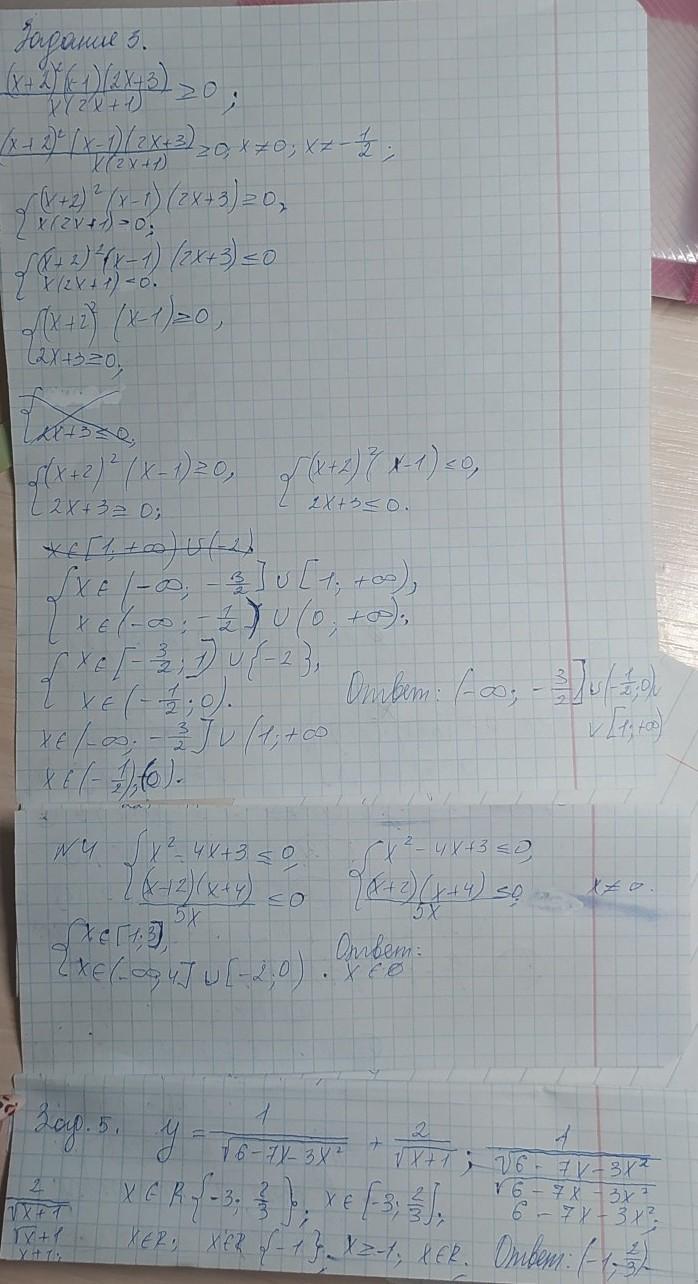 Задание 3.
(x+2)²(x-1)(2x+3) / x(2x+1) ≥ 0;
(x+2)²(x-1)(2x+3) / x(2x+1) ≥ 0, x≠0; x≠-1/2;
{(x+2)²(x-1)(2x+3)≥0,
x(2x+1)>0;
{(x+2)²(x-1)(2x+3)≤0
x(2x+1)<0.
{(x+2)²(x-1)≥0,
2x+3≥0,
{
2x+3≤0,
{(x+2)²(x-1)≥0, {(x+2)²(x-1)≤0,
2x+3≥0; 2x+3≤0.
x∈[1; +∞)∪(-2)
{x∈(-∞; -3/2]∪[1; +∞),
x∈(-∞; -1/2)∪(0; +∞);
{x∈[-3/2; 1)∪{-2},
x∈(-1/2; 0). Ответ: (-∞; -3/2]∪(-1/2; 0)∪
∪[1; +∞)
x∈(-∞; -3/2]∪(1; +∞
x∈(-1/2; 0).
N4 {x²-4x+3≤0, {x²-4x+3≤0,
(x+2)(x+4) / 5x ≤0 (x+2)(x+4) / 5x ≤0, x≠0.
{x∈[1;3], Ответ:
x∈(-∞;4]∪[-2;0). x∈∅
Зад. 5. y = 1/√6-7x-3x² + 2/√x+1; 1/√6-7x-3x²
2/√x+1 x∈R{-3; 2/3}; x∈[-3; 2/3]; √6-7x-3x²
6-7x-3x²;
√x+1 x∈R; x∈R{-1}. x≥-1; x∈R. Ответ: (-1; 2/3).
x+1;